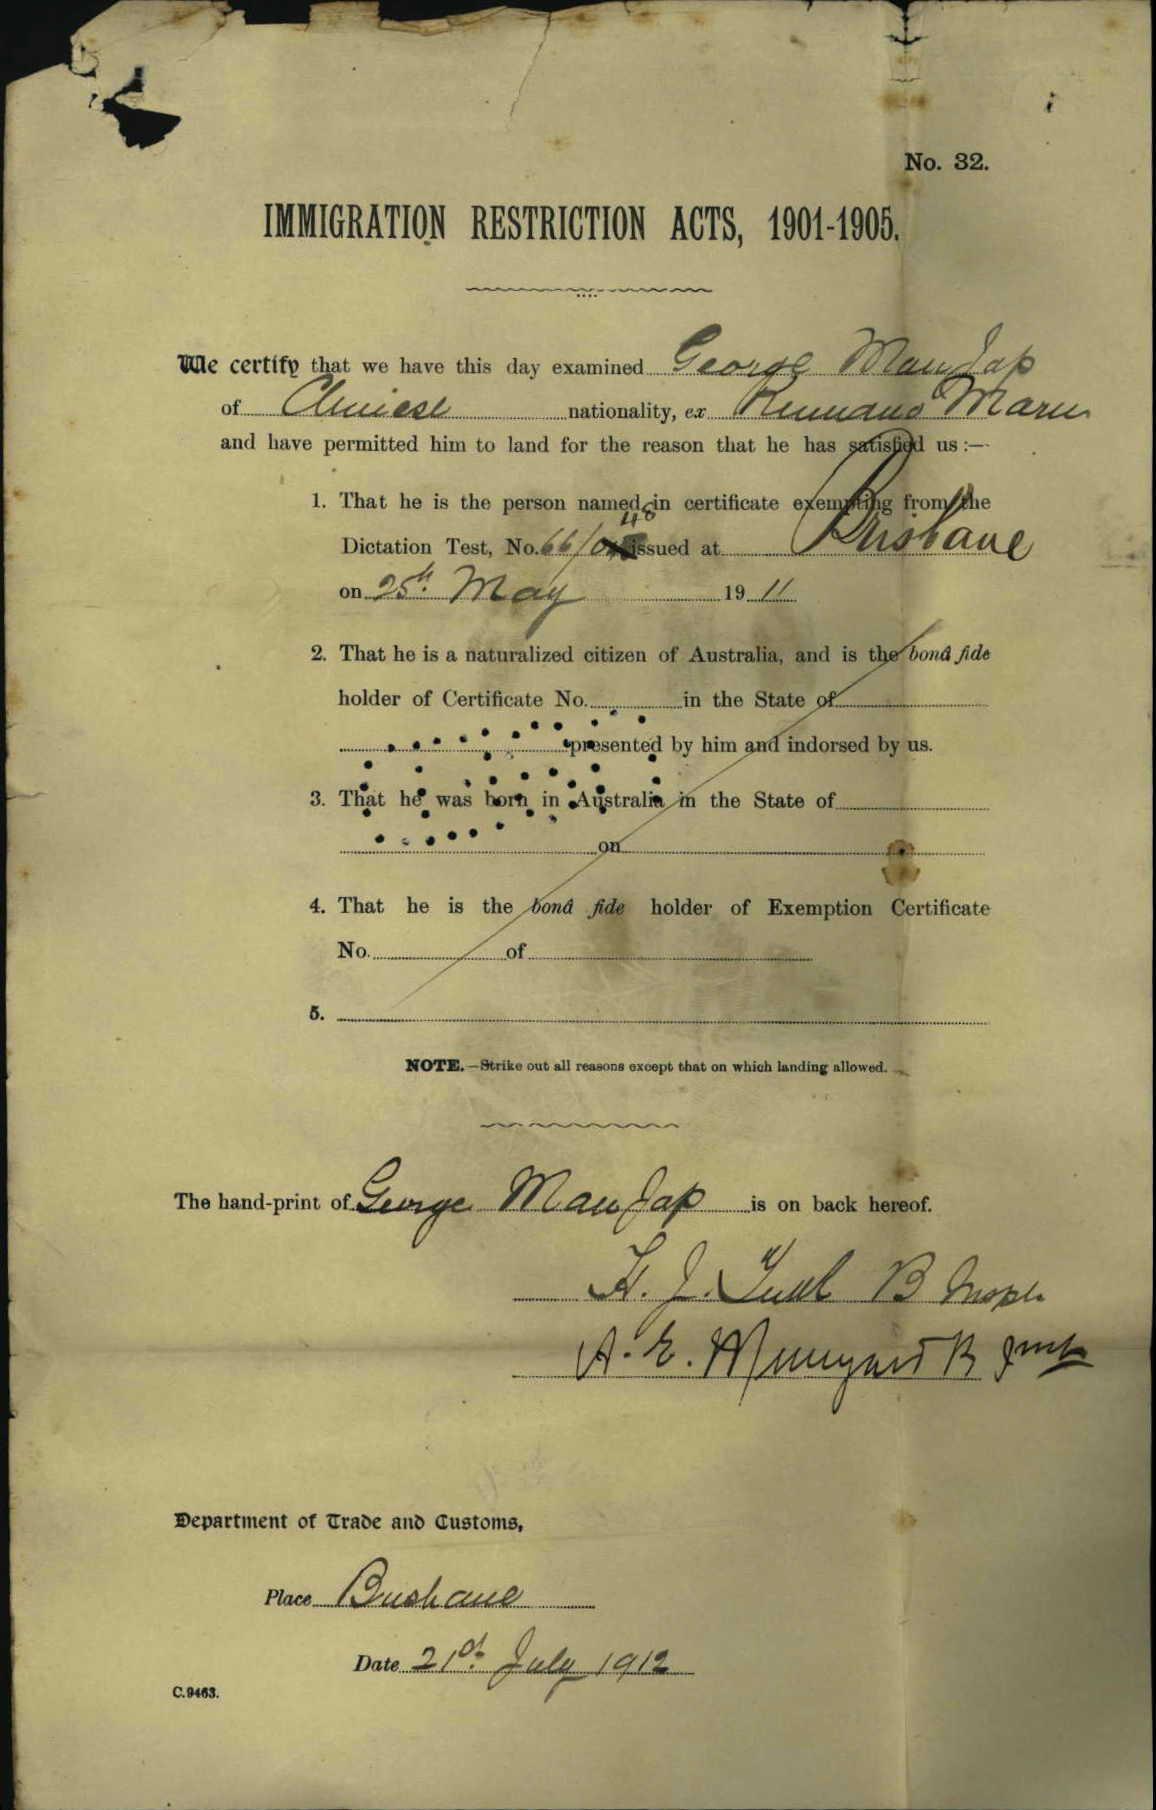 No. 32.
IMMIGRATION RESTRICTION ACTS, 1901-1905.
We certify that we have this day examined George Man Jap
of Chinese nationality, ex Kumano Maru
and have permitted him to land for the reason that he has satisfied us :—
1. That he is the person named in certificate exempting from the
48
Dictation Test, No. 66/ issued at Brisbane
on 25th May 1911
2. That he is a naturalized citizen of Australia, and is the bonâ fide
holder of Certificate No. in the State of
presented by him and indorsed by us.
3. That he was born in Australia in the State of
on
4. That he is the bonâ fide holder of Exemption Certificate
No. of
5.
NOTE.—Strike out all reasons except that on which landing allowed.
The hand-print of George Man Jap is on back hereof.
H. J. B Inspr
A. E. B
Department of Trade and Customs,
Place Brisbane
Date 21st July 1912
C.9463.